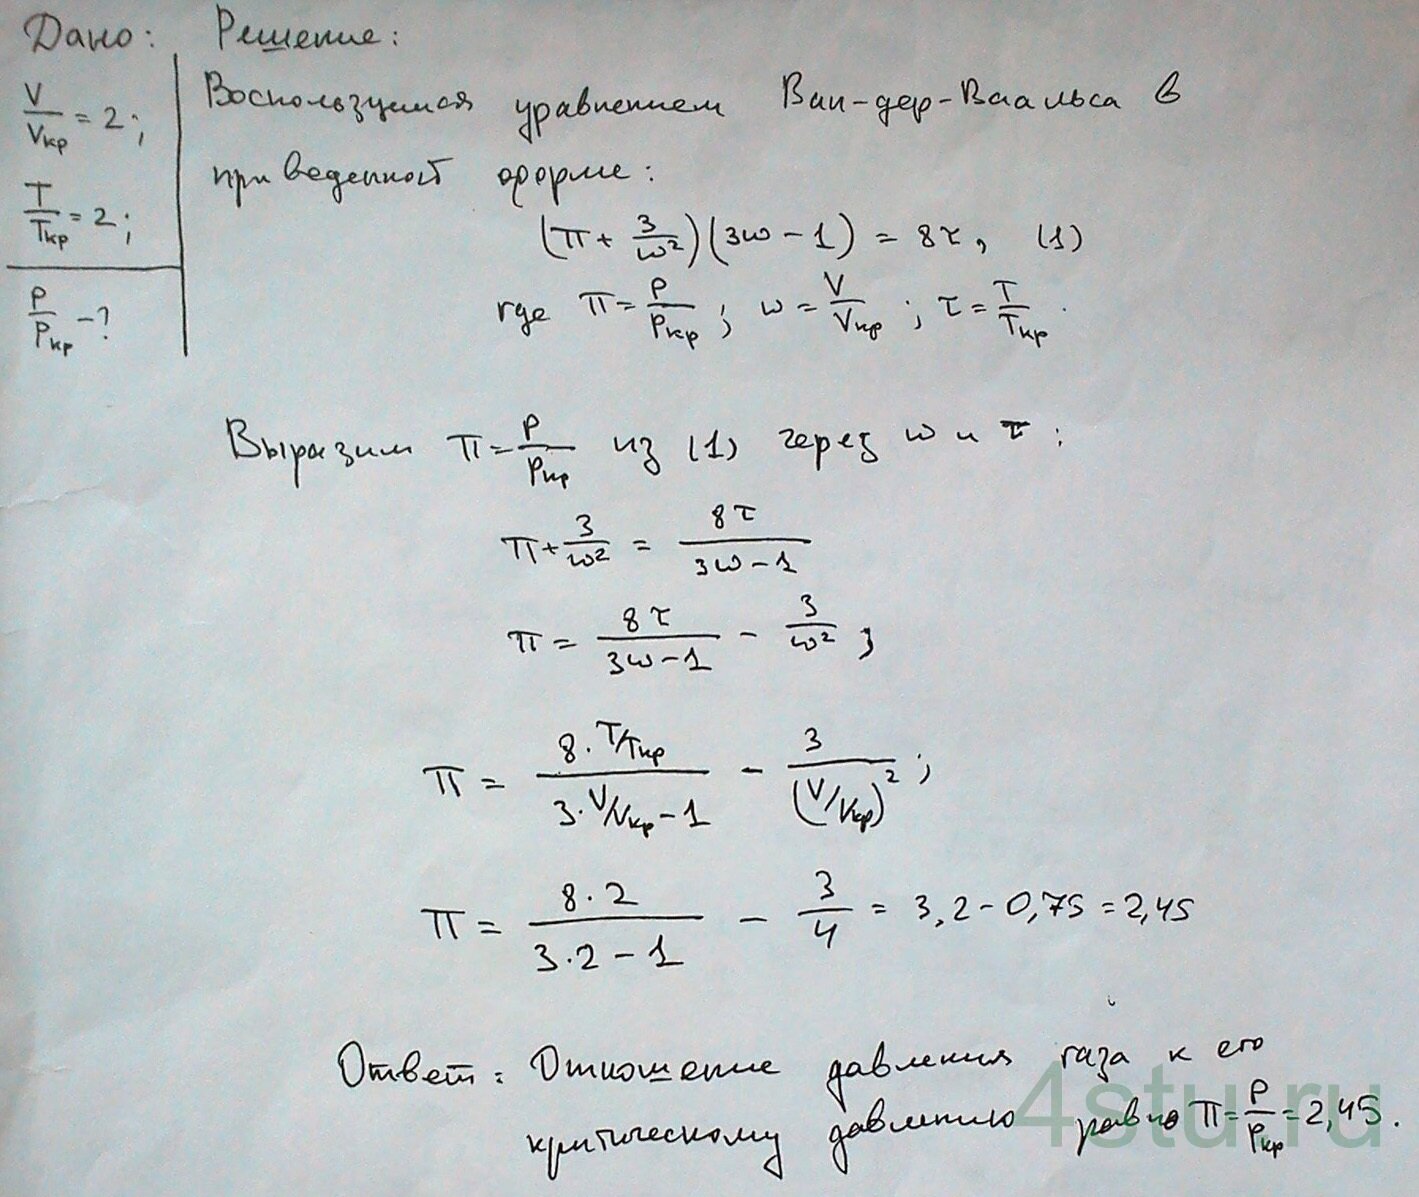 Дано:
V/Vкр = 2;
T/Tкр = 2;
P/Pкр - ?
Решение:
Воспользуемся уравнением Ван-дер-Ваальса в
приведенной форме:
(π + 3/ω²)(3ω - 1) = 8τ, (1)
где π = P/Pкр; ω = V/Vкр; τ = T/Tкр.
Выразим π = P/Pкр из (1) через ω и τ:
π + 3/ω² = 8τ/(3ω - 1)
π = 8τ/(3ω - 1) - 3/ω²;
π = (8·T/Tкр)/(3·V/Vкр - 1) - 3/(V/Vкр)²;
π = (8·2)/(3·2 - 1) - 3/4 = 3,2 - 0,75 = 2,45
Ответ: Отношение давления газа к его
критическому давлению равно π = P/Pкр = 2,45.
4stu.ru